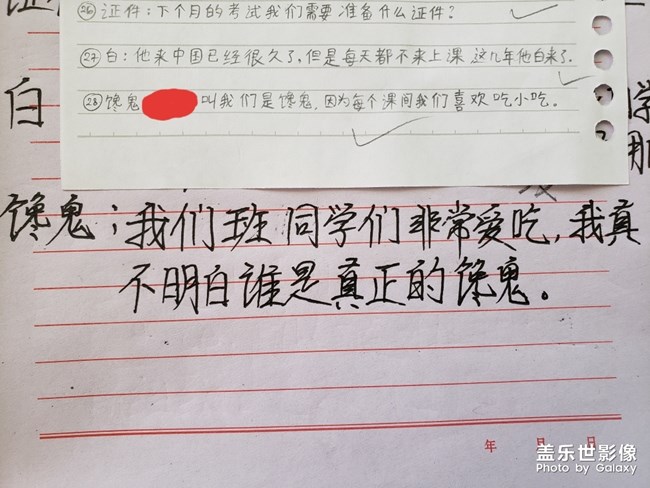 ㉖证件：下个月的考试我们需要准备什么证件？
㉗白：他来中国已经很久了，但是每天都不来上课 这几年他白来了.
㉘馋鬼 叫我们是馋鬼，因为每个课间我们喜欢吃小吃。
白
学
用
馋鬼；我们班同学们非常爱吃，我真
不明白谁是真正的馋鬼。
年 月 日
盖乐世影像
Photo by Galaxy